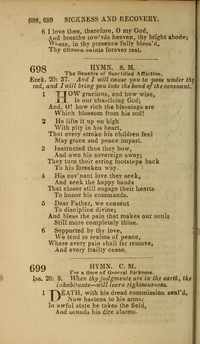 698, 699 SICKNESS AND RECOVERY.
6 I love thee, therefore, O my God,
And breathe tow'rds heaven, thy bright abode;
Where, in thy presence fully bless'd,
Thy chosen saints forever rest.
698 HYMN. S. M.
The Benefits of Sanctified Affliction.
Ezek. 20: 37. And I will cause you to pass under the
rod, and I will bring you into the bond of the covenant.
1 HOW gracious, and how wise,
Is our chastising God;
And, O! how rich the blessings are
Which blossom from his rod!
2 He lifts it up on high
With pity in his heart,
That every stroke his children feel
May grace and peace impart.
3 Instructed thus they bow,
And own his sovereign sway;
They turn their erring footsteps back
To his forsaken way.
4 His cov'nant love they seek,
And seek the happy bands
That closer still engage their hearts
To honor his commands.
5 Dear Father, we consent
To discipline divine;
And bless the pain that makes our souls
Still more completely thine.
6 Supported by thy love,
We tend to realms of peace,
Where every pain shall far remove,
And every frailty cease.
699 HYMN. C. M.
For a time of General Sickness.
Isa. 26: 9. When thy judgments are in the earth, the
inhabitants—will learn righteousness.
1 DEATH, with his dread commission seal'd,
Now hastens to his arms;
In awful state he takes the field,
And sounds his dire alarms.